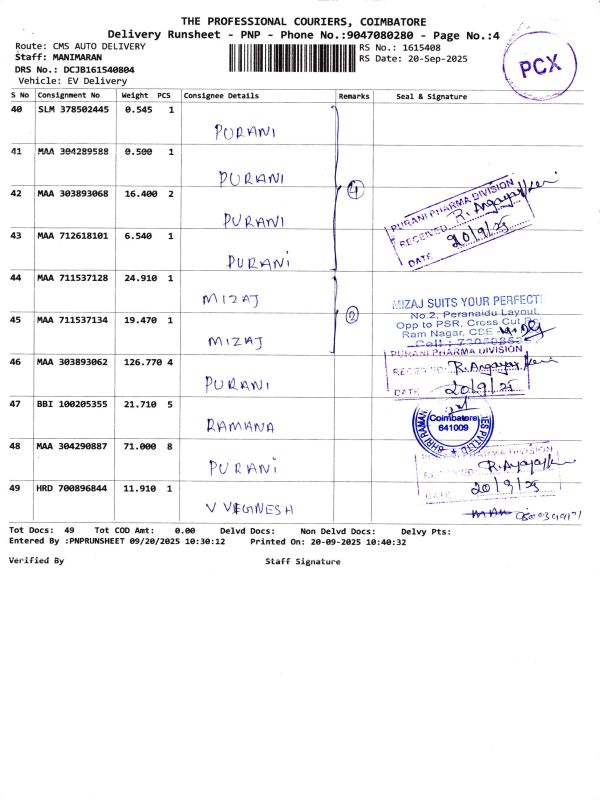 THE PROFESSIONAL COURIERS, COIMBATORE
Delivery Runsheet - PNP - Phone No.:9047080280 - Page No.:4
Route: CMS AUTO DELIVERY
RS No.: 1615408
Staff: MANIMARAN
RS Date: 20-Sep-2025
DRS No.: DCJB161540804
Vehicle: EV Delivery
PCX
S No Consignment No Weight PCS Consignee Details Remarks Seal & Signature
40 SLM 378502445 0.545 1
PURANI
41 MAA 304289588 0.500 1
PURANI
42 MAA 303893068 16.400 2
PURANI
④
PURANI PHARMA DIVISION
RECEIVED
DATE 20/9/25
43 MAA 712618101 6.540 1
PURANI
44 MAA 711537128 24.910 1
MIZAJ
②
MIZAJ SUITS YOUR PERFECTI
No.2, Peranaidu Layout,
Opp to PSR, Cross Cut
Ram Nagar, CBE
45 MAA 711537134 19.470 1
MIZAJ
46 MAA 303893062 126.770 4
PURANI
PURANI PHARMA DIVISION
DATE 20/9/25
47 BBI 100205355 21.710 5
RAMANA
Coimbatore
641009
48 MAA 304290887 71.000 8
PURANI
DATE 20/9/25
49 HRD 700896844 11.910 1
V VEGNESH
Tot Docs: 49 Tot COD Amt: 0.00 Delvd Docs: Non Delvd Docs: Delvy Pts:
Entered By :PNPRUNSHEET 09/20/2025 10:30:12 Printed On: 20-09-2025 10:40:32
Verified By Staff Signature